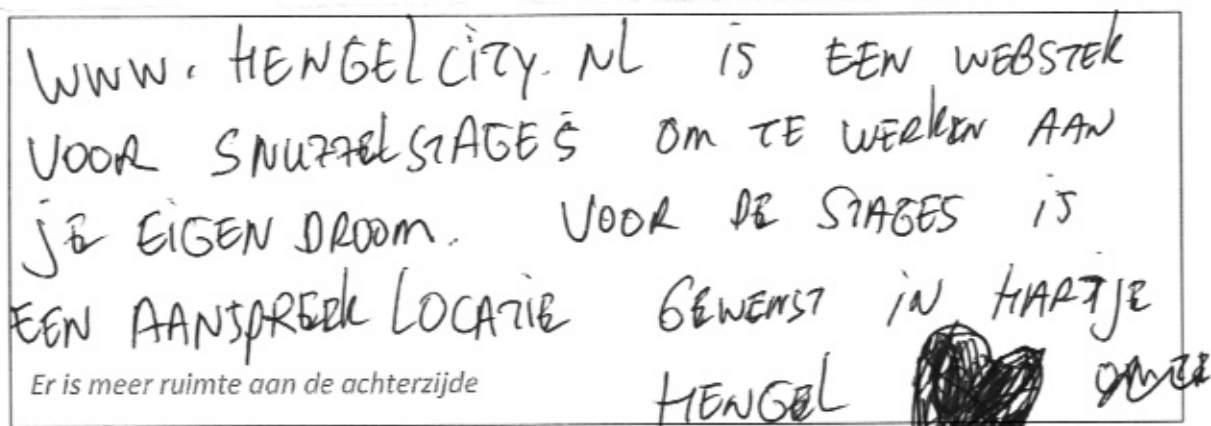 WWW.HENGELCITY.NL IS EEN WEBSTEK
VOOR SNUZZELSTAGES OM TE WERKEN AAN
JE EIGEN DROOM. VOOR DE STAGES IS
EEN AANSPREEK LOCATIE GEWENST IN HARTJE
Er is meer ruimte aan de achterzijde HENGEL